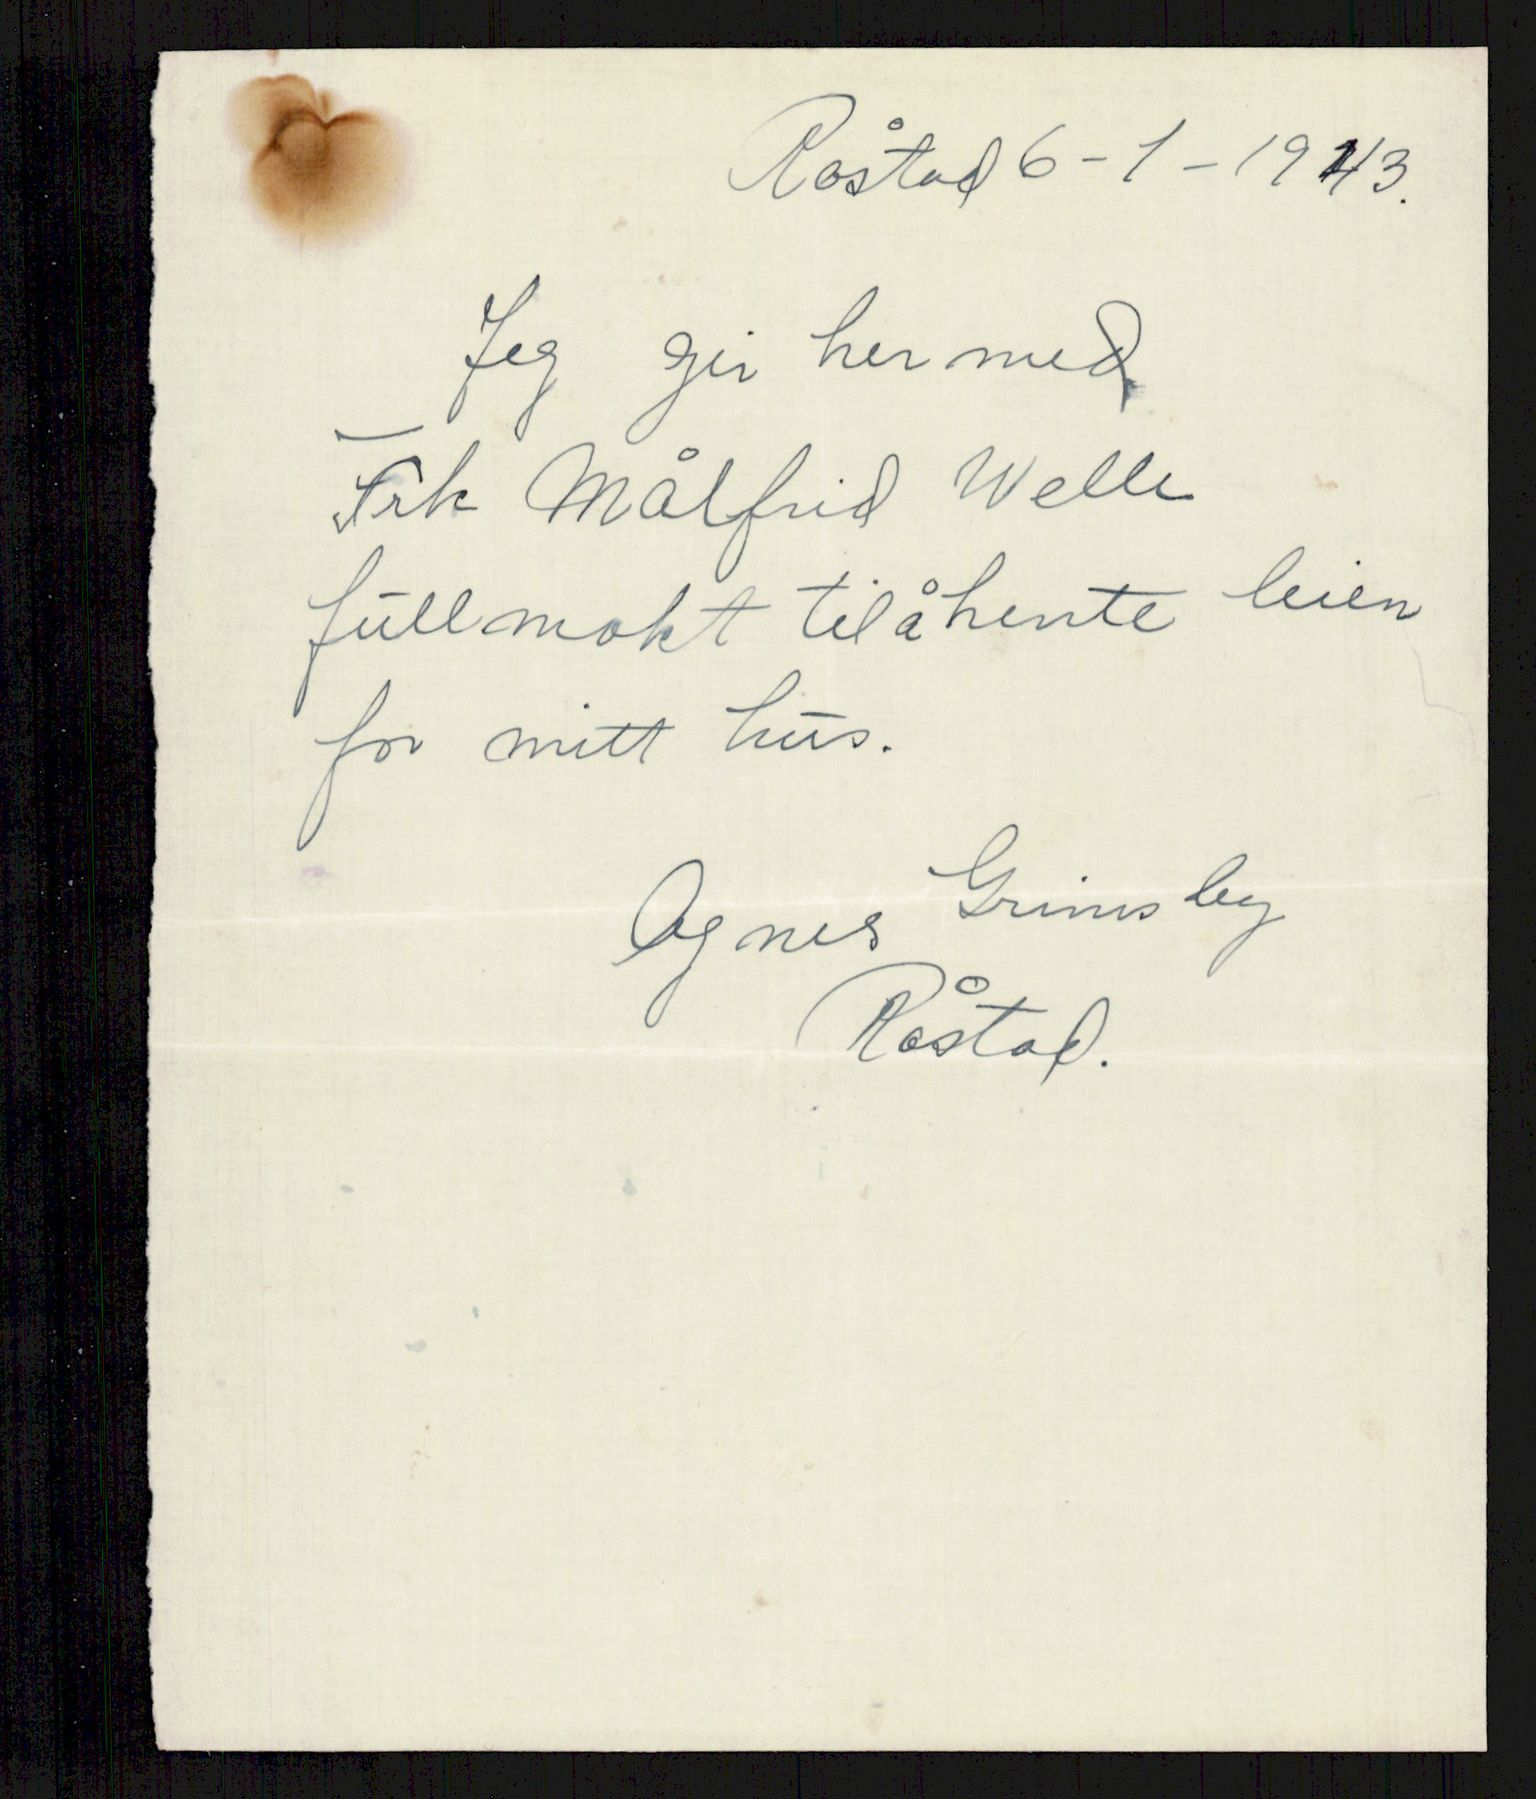 Råstad 6-1-1943.
Jeg gir hermed
Frk Målfrid Welle
fullmakt til å hente leien
for mitt hus.
Agnes Grimsby
Råstad.